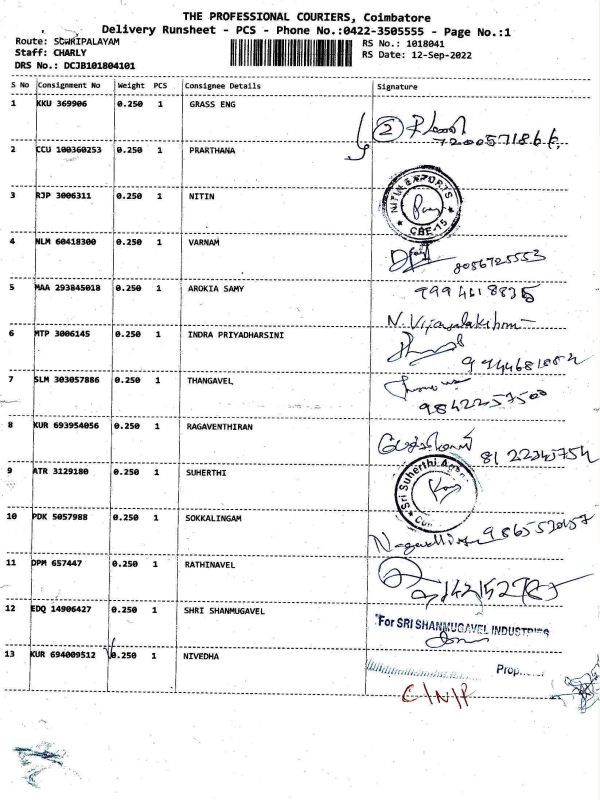 THE PROFESSIONAL COURIERS, Coimbatore
Delivery Runsheet - PCS - Phone No.:0422-3505555 - Page No.:1
Route: SOWRIPALAYAM
RS No.: 1018041
Staff: CHARLY
RS Date: 12-Sep-2022
DRS No.: DCJB101804101
S No Consignment No Weight PCS Consignee Details Signature
1 KKU 369906 0.250 1 GRASS ENG
2
2 CCU 100360253 0.250 1 PRARTHANA
3 RJP 3006311 0.250 1 NITIN
NITIN EXPORTS
CBE-15
4 NLM 60418300 0.250 1 VARNAM
8056725553
5 MAA 293845018 0.250 1 AROKIA SAMY
6 MTP 3006145 0.250 1 INDRA PRIYADHARSINI
7 SLM 303057886 0.250 1 THANGAVEL
9842257500
8 KUR 693954056 0.250 1 RAGAVENTHIRAN
9 ATR 3129180 0.250 1 SUHERTHI
Sri Suherthi
10 PDK 5057988 0.250 1 SOKKALINGAM
11 DPM 657447 0.250 1 RATHINAVEL
12 EDQ 14906427 0.250 1 SHRI SHANMUGAVEL
For SRI SHANMUGAVEL INDUSTRIES
13 KUR 694009512 0.250 1 NIVEDHA
C/N/P